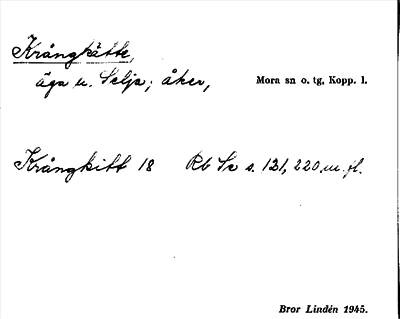 Krångkätte,
äga u. Selja; åker, Mora sn o. tg, Kopp. l.
Krångkitt 18 Rb Sv s. 121, 220 m. fl.
Bror Lindén 1945.